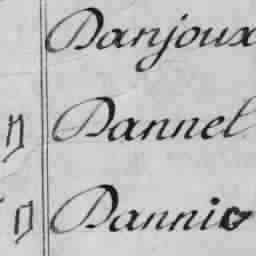 Danjoux
Dannel
Dannic